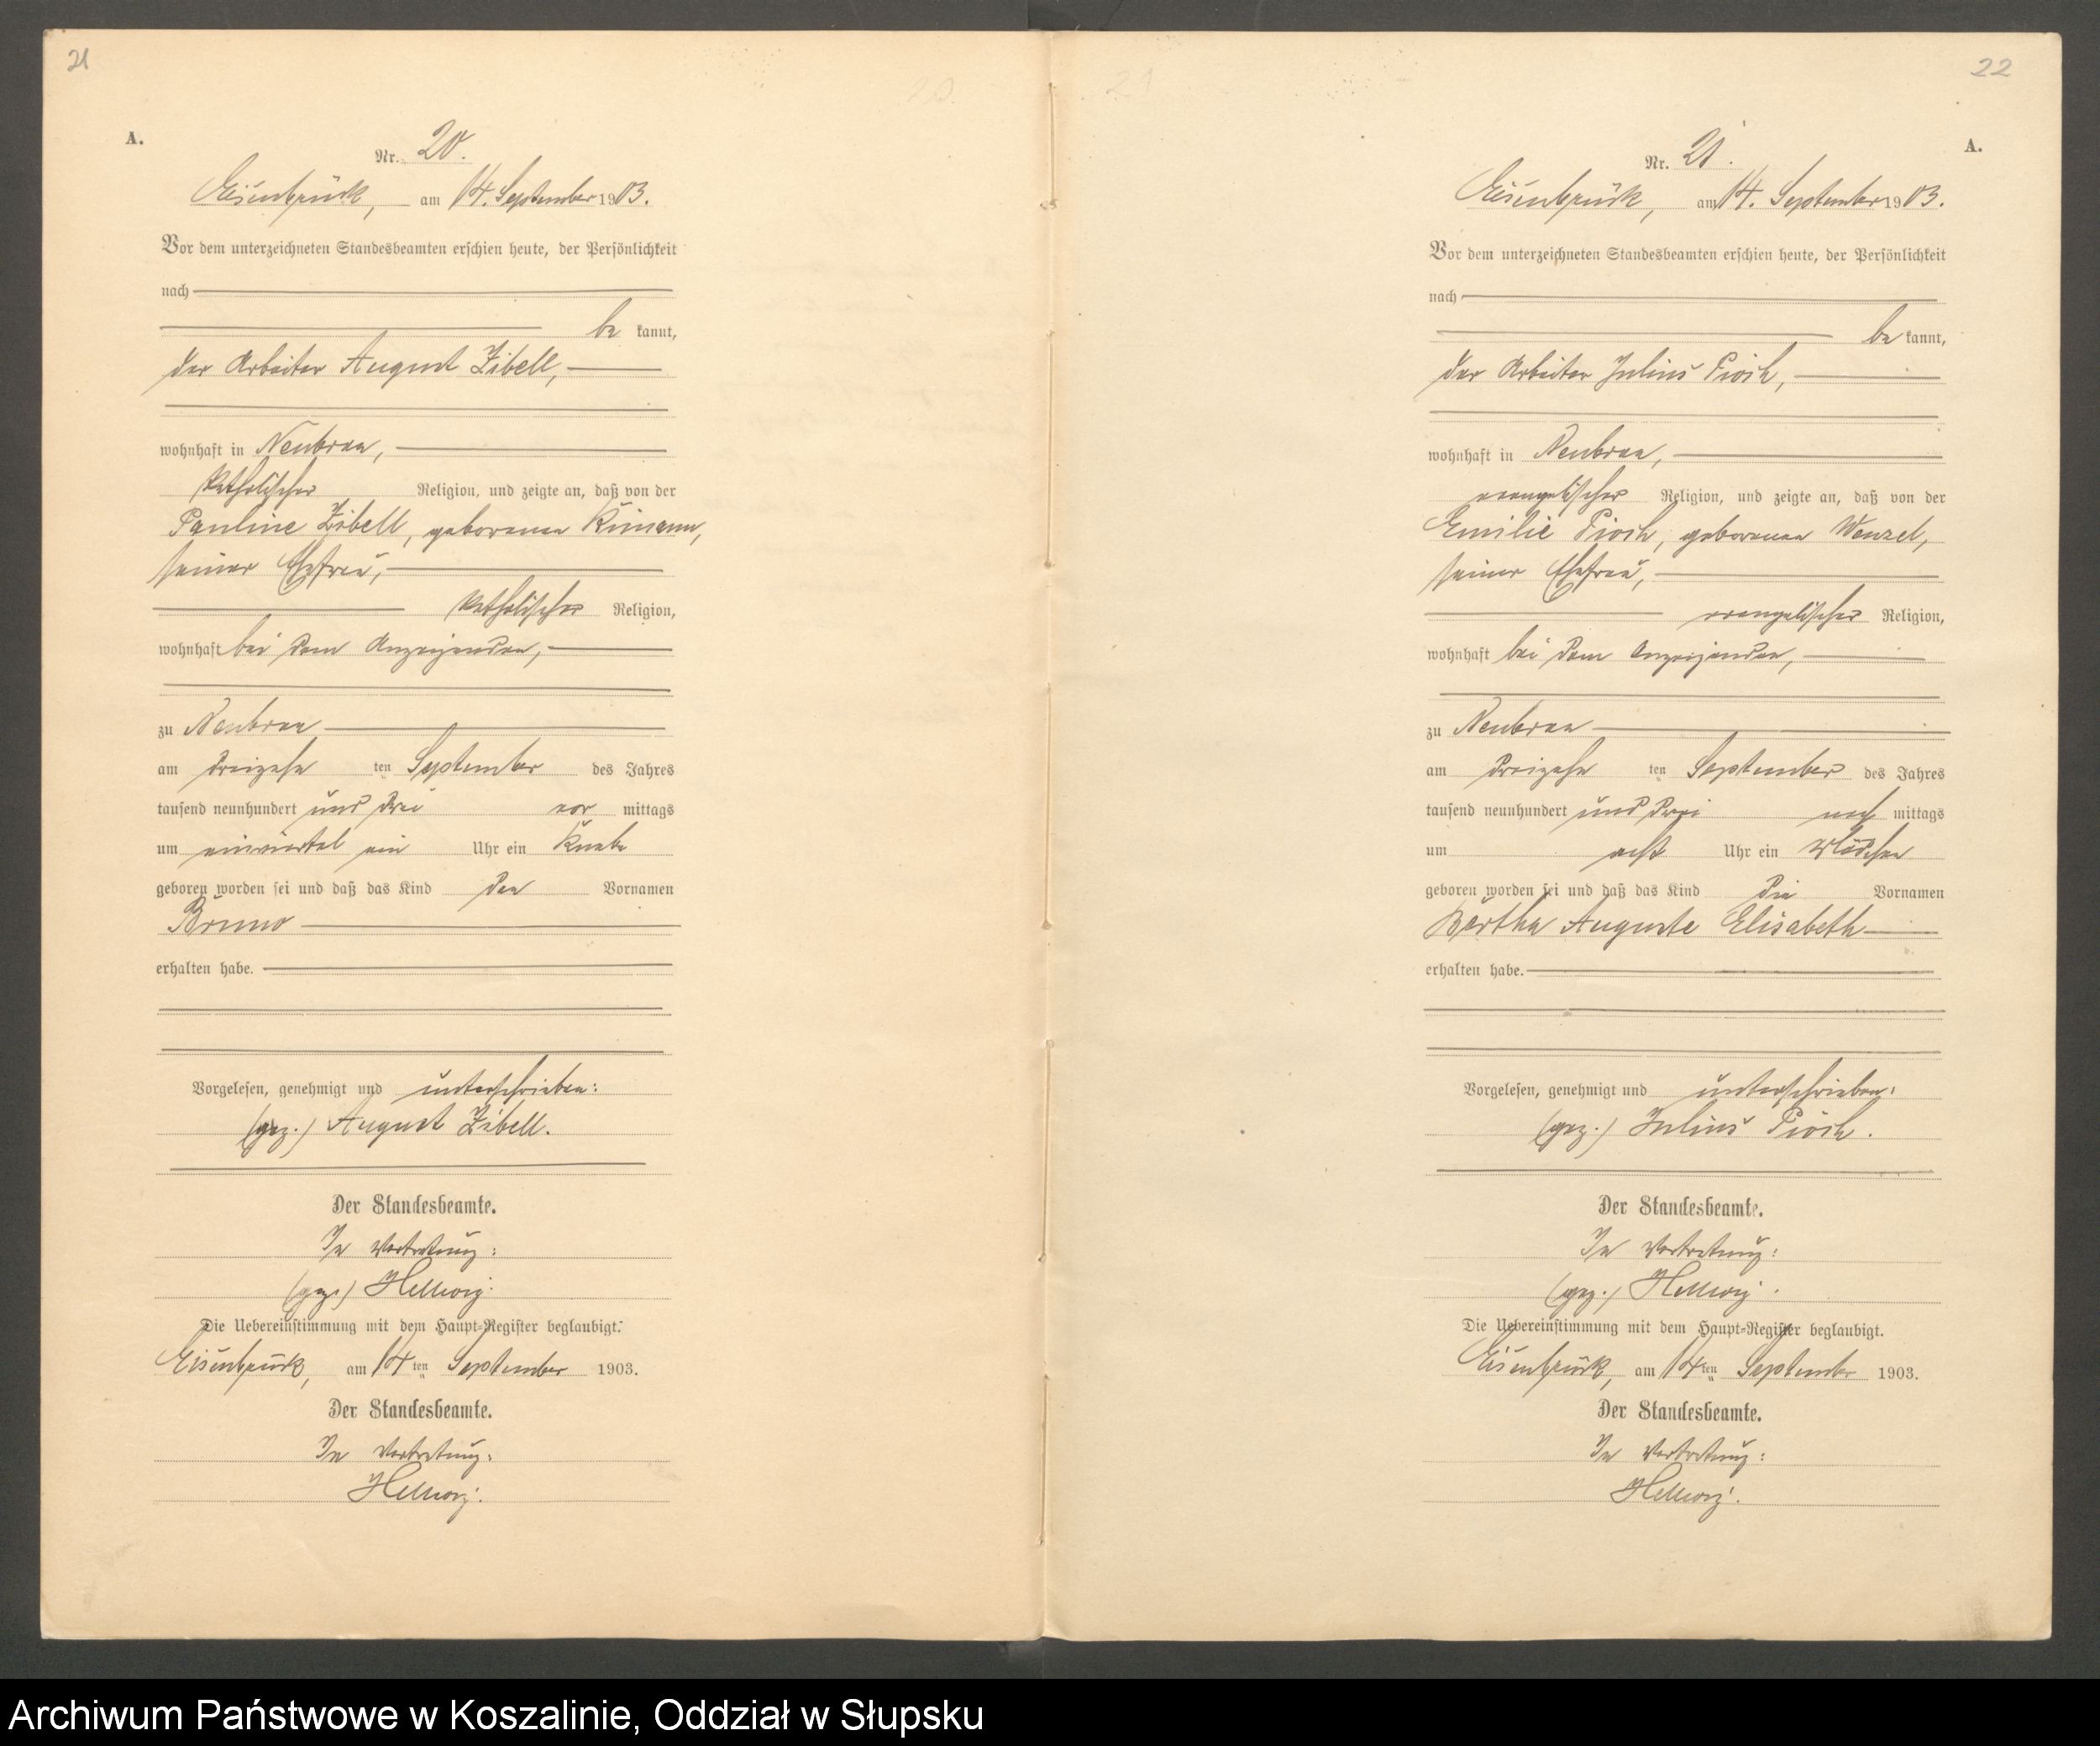 21
A.
Nr. 20.
Eisenbrück, am 14. September 1903.
Vor dem unterzeichneten Standesbeamten erschien heute, der Persönlichkeit
nach
be kannt,
der Arbeiter August Zibell,
wohnhaft in Neubraa,
katholischer Religion, und zeigte an, daß von der
Pauline Zibell, geborenen
seiner Ehefrau,
katholischer Religion,
wohnhaft bei dem Anzeigenden,
zu Neubraa
am dreizehn ten September des Jahres
tausend neunhundert und drei vor mittags
um einviertel ein Uhr ein Knabe
geboren worden sei und daß das Kind den Vornamen
Bruno
erhalten habe.
Vorgelesen, genehmigt und unterschrieben:
(gez.) August Zibell.
Der Standesbeamte.
In Vertretung:
(gez.) Hellwig.
Die Uebereinstimmung mit dem Haupt-Register beglaubigt.
Eisenbrück, am 14 ten September 1903.
Der Standesbeamte.
In Vertretung:
Hellwig.
22
A.
Nr. 21.
Eisenbrück, am 14. September 1903.
Vor dem unterzeichneten Standesbeamten erschien heute, der Persönlichkeit
nach
be kannt,
der Arbeiter Julius Pioch,
wohnhaft in Neubraa,
evangelischer Religion, und zeigte an, daß von der
Emilie Pioch, geborenen Wenzel,
seiner Ehefrau,
evangelischer Religion,
wohnhaft bei dem Anzeigenden,
zu Neubraa
am dreizehn ten September des Jahres
tausend neunhundert und drei nach mittags
um acht Uhr ein Mädchen
geboren worden sei und daß das Kind die Vornamen
Bertha Auguste Elisabeth
erhalten habe.
Vorgelesen, genehmigt und unterschrieben:
(gez.) Julius Pioch.
Der Standesbeamte.
In Vertretung:
(gez.) Hellwig.
Die Uebereinstimmung mit dem Haupt-Register beglaubigt.
Eisenbrück, am 14 ten September 1903.
Der Standesbeamte.
In Vertretung:
Hellwig.
Archiwum Państwowe w Koszalinie, Oddział w Słupsku